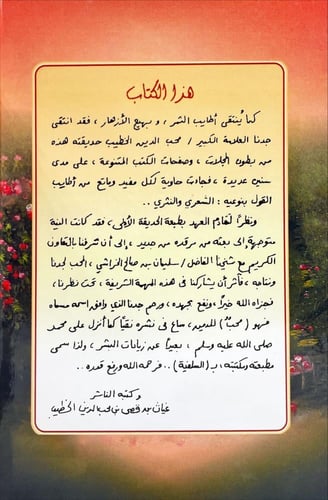 هذا الكتاب
كما يُنتقى أطايب الثمر، وبهيج الأزهار، فقد انتقى
جدنا العلامة الكبير / محب الدين الخطيب حديقته هذه
من بطون المجلات، وصفحات الكتب المتنوعة، على مدى
سنين عديدة، فجاءت حاوية لكل مفيد وماتع من أطايب
القول بنوعيه: الشعري والنثري..
ونظراً لتقادم العهد بطبعة الحديقة الأولى، فقد كانت النية
متوجهة إلى بعثه من مرقده من جديد، إلى أن شرفنا بالتعاون
الكريم مع شيخنا الفاضل / سليمان بن صالح الخراشي، المحب لجدنا
ونتاجه، فآثر أن يشاركنا في هذه المهمة الشريفة، تحت نظرنا،
فجزاه الله خيراً ونفع بجهده، ورحم جدنا الذي وافق اسمه مسماه
فهو (محبٌ) للدين، ساعٍ في نشره نقياً كما أنزل على محمد
صلى الله عليه وسلم، بعيداً عن زيادات البشر، ولذا سمى
مطبعته ومكتبته بـ (السلفية).. فرحمه الله ورفع قدره..
وكتبه الناشر
غياث بن قصي بن محب الدين الخطيب